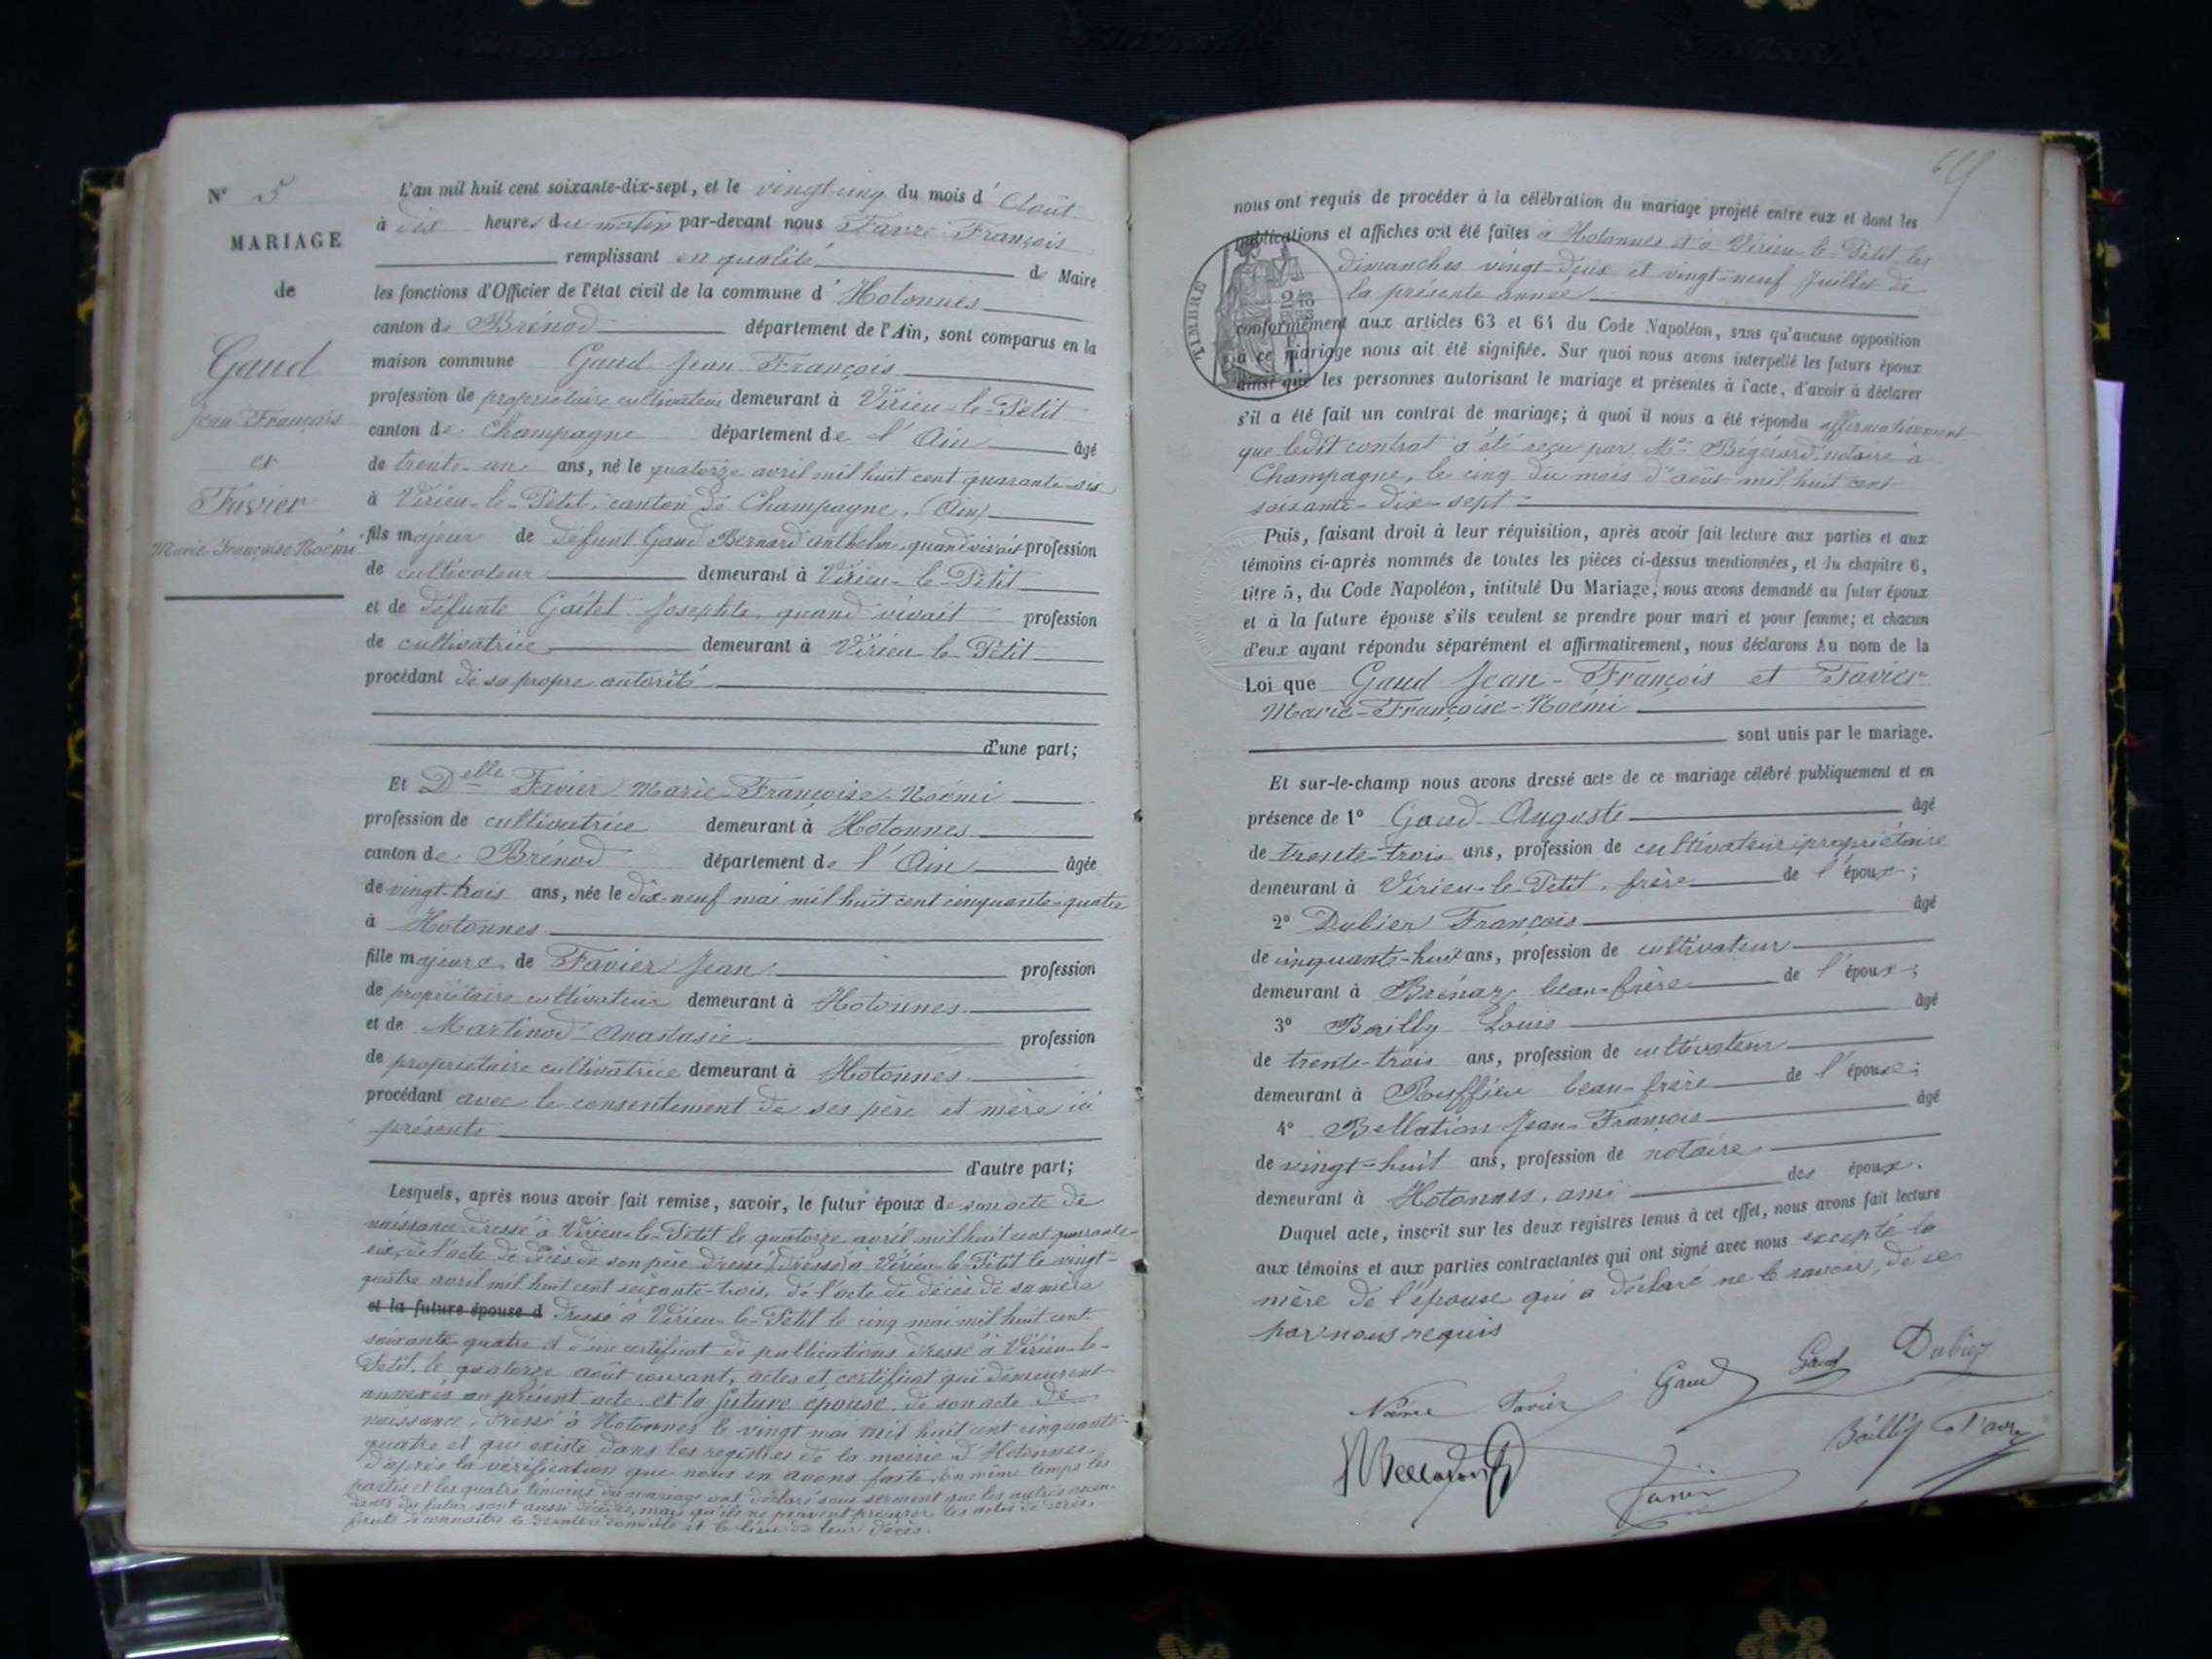 N° 5
MARIAGE
de
Gaud
Jean François
et
Favier
Marie Françoise Noémi
L'an mil huit cent soixante-dix-sept, et le vingt-cinq du mois d'Août
à dix heures du matin par-devant nous Favre François
remplissant en qualité de Maire
les fonctions d'Officier de l'état civil de la commune d'Hotonnes
canton de Brénod département de l'Ain, sont comparus en la
maison commune Gaud Jean François
profession de propriétaire cultivateur demeurant à Virieu-le-Petit
canton de Champagne département de l'Ain âgé
de trente-un ans, né le quatorze avril mil huit cent quarante-six
à Virieu-le-Petit, canton de Champagne, (Ain)
fils majeur de défunt Gaud Bernard Anthelme, quand vivait profession
de cultivateur demeurant à Virieu-le-Petit
et de défunte Josephte, quand vivait profession
de cultivatrice demeurant à Virieu-le-Petit
procédant de sa propre autorité
d'une part;
Et Delle Favier Marie-Françoise-Noémi
profession de cultivatrice demeurant à Hotonnes
canton de Brénod département de l'Ain âgée
de vingt-trois ans, née le dix-neuf mai mil huit cent cinquante-quatre
à Hotonnes
fille majeure de Favier Jean profession
de propriétaire cultivateur demeurant à Hotonnes
et de Martinod Anastasie profession
de propriétaire cultivatrice demeurant à Hotonnes
procédant avec le consentement de ses père et mère ici
présents
d'autre part;
Lesquels, après nous avoir fait remise, savoir, le futur époux de son acte de
naissance dressé à Virieu-le-Petit le quatorze avril mil huit cent quarante-
six, de l'acte de décès de son père dressé (dressé) à Virieu-le-Petit le vingt-
quatre avril mil huit cent soixante-trois, de l'acte de décès de sa mère
et la future épouse d dressé à Virieu-le-Petit le cinq mai mil huit cent
soixante-quatre et d'un certificat de publications dressé à Virieu-le-
Petit, le quatorze août courant, actes et certificat qui demeurent
annexés au présent acte, et la future épouse, de son acte de
naissance, dressé à Hotonnes le vingt mai mil huit cent cinquante-
quatre et qui existe dans les registres de la mairie d'Hotonnes,
d'après la vérification que nous en avons faite. En même temps les
parties et les quatre témoins du mariage ont déclaré sous serment que les autres ascen-
dants du futur sont aussi décédés, mais qu'ils ne peuvent procurer les actes de décès,
faute de connaître le dernier domicile et le lieu de leur décès.
nous ont requis de procéder à la célébration du mariage projeté entre eux et dont les
publications et affiches ont été faites à Hotonnes et à Virieu-le-Petit les
dimanches vingt-deux et vingt-neuf Juillet de
la présente année
TIMBRE
conformément aux articles 63 et 64 du Code Napoléon, sans qu'aucune opposition
à ce mariage nous ait été signifiée. Sur quoi nous avons interpellé les futurs époux
ainsi que les personnes autorisant le mariage et présentes à l'acte, d'avoir à déclarer
s'il a été fait un contrat de mariage; à quoi il nous a été répondu affirmativement
que ledit contrat a été reçu par Me Bégérard, notaire à
Champagne, le cinq du mois d'août mil huit cent
soixante-dix-sept
Puis, faisant droit à leur réquisition, après avoir fait lecture aux parties et aux
témoins ci-après nommés de toutes les pièces ci-dessus mentionnées, et du chapitre 6,
titre 5, du Code Napoléon, intitulé Du Mariage, nous avons demandé au futur époux
et à la future épouse s'ils veulent se prendre pour mari et pour femme; et chacun
d'eux ayant répondu séparément et affirmativement, nous déclarons Au nom de la
Loi que Gaud Jean-François et Favier
Marie-Françoise-Noémi
sont unis par le mariage.
Et sur-le-champ nous avons dressé acte de ce mariage célébré publiquement et en
présence de 1° Gaud Auguste âgé
de trente-trois ans, profession de cultivateur propriétaire
demeurant à Virieu-le-Petit, frère de l'époux;
2° Dubiez François âgé
de cinquante-huit ans, profession de cultivateur
demeurant à Brénaz, beau-frère de l'époux;
3° Bailly Louis âgé
de trente-trois ans, profession de cultivateur
demeurant à Ruffieu beau-frère de l'épouse;
4° Jean-François âgé
de vingt-huit ans, profession de notaire
demeurant à Hotonnes, ami des époux.
Duquel acte, inscrit sur les deux registres tenus à cet effet, nous avons fait lecture
aux témoins et aux parties contractantes qui ont signé avec nous excepté la
mère de l'épouse qui a déclaré ne le savoir, de ce
par nous requis
Gaud Gaud Dubiez
Noémie Favier
Bailly Favre
Favier